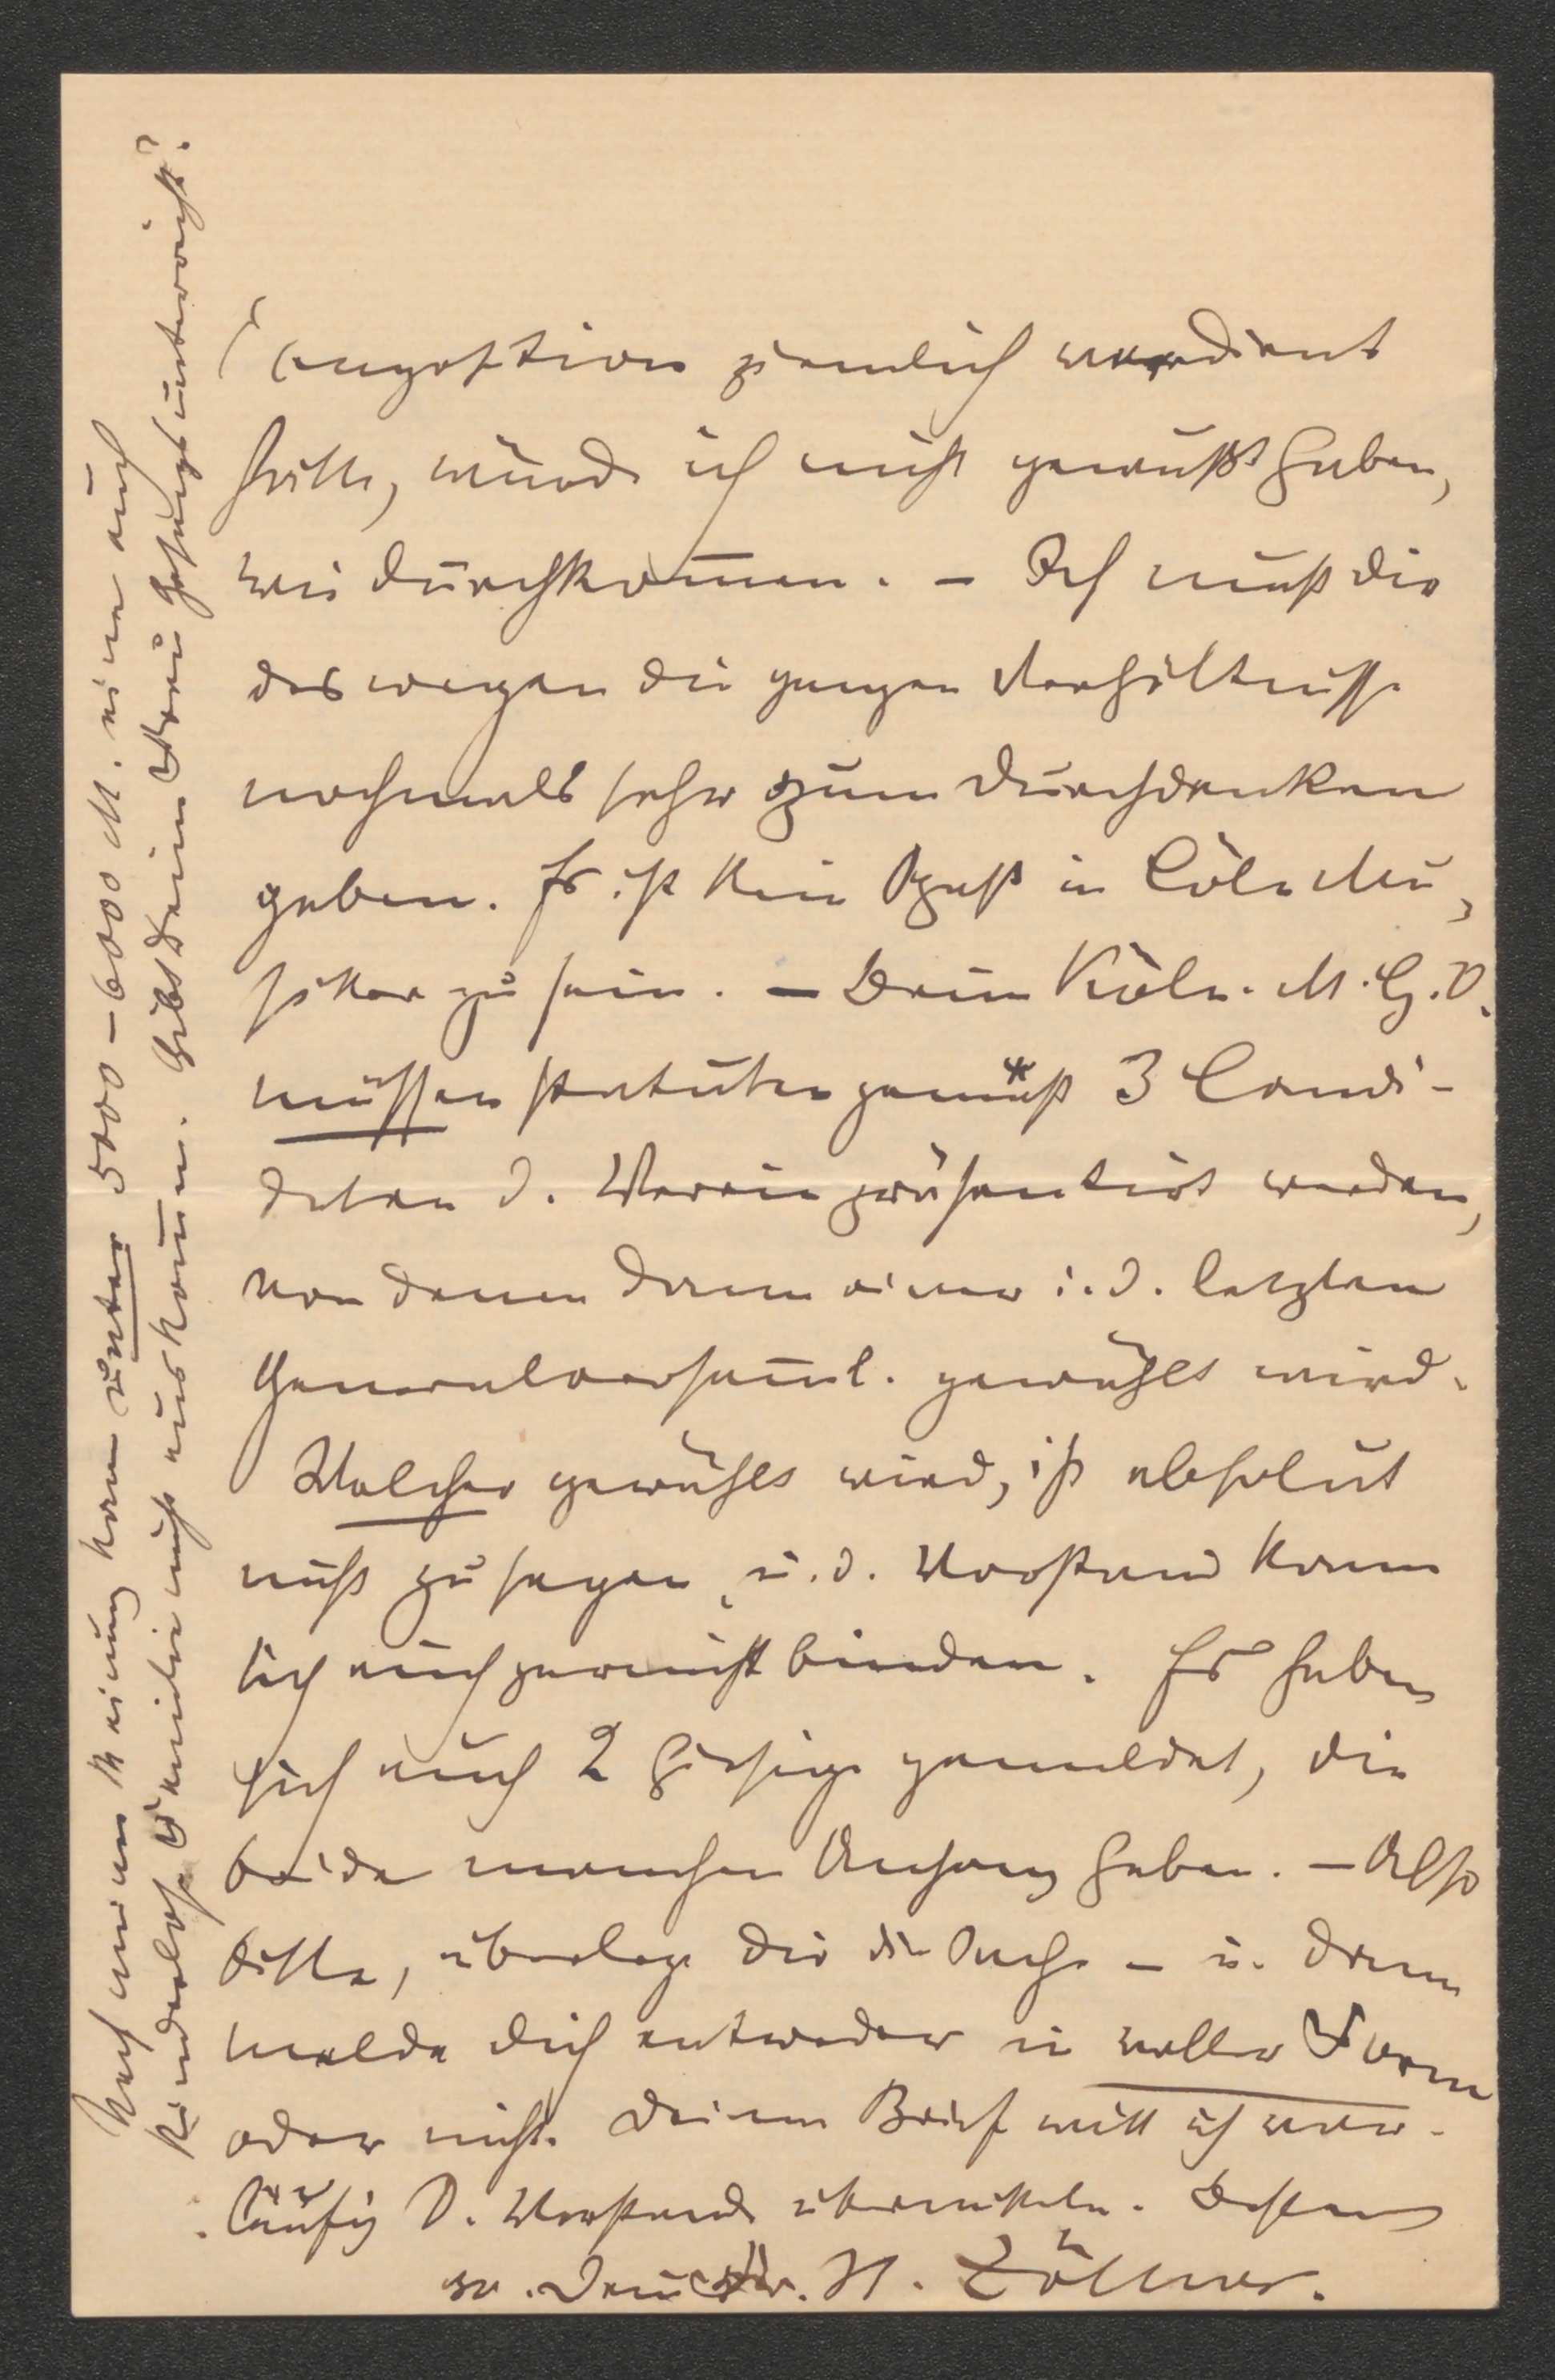 Composition ziemlich verdient
hätte, würde ich nicht gewußt haben,
wie durchkom̄en. – Ich muß dir
deswegen die ganzen Verhältnisse
nochmals sehr zum Durchdenken
geben. Es ist kein Spaß in Cöln Mu-
siker zu sein. – Beim Köln. M. G. V.
müssen statutengemäß 3 Candi-
daten d. Verein präsentirt werden,
von denen dann einer i. d. letzten
Generalversam̄l. gewählt wird.
Welcher gewählt wird, ist absolut
nicht zu sagen, u. d. Vorstand kann
sich auch garnicht binden. Es haben
sich auch 2 Hiesige gemeldet, die
beide manchen Anhang haben. – Also
bitte, überlege dir die Sache – u. dann
melde dich entweder in voller Form
oder nicht. Deinen Brief will ich vor-
läufig d. Vorstande übermitteln. Bestens
H. Zöllner.
Nach meiner Meinung kann unter 5000–6000 M. eine auch
kinderlose Familie nicht auskom̄en. Gibt deine Frau Gesangsunterricht?